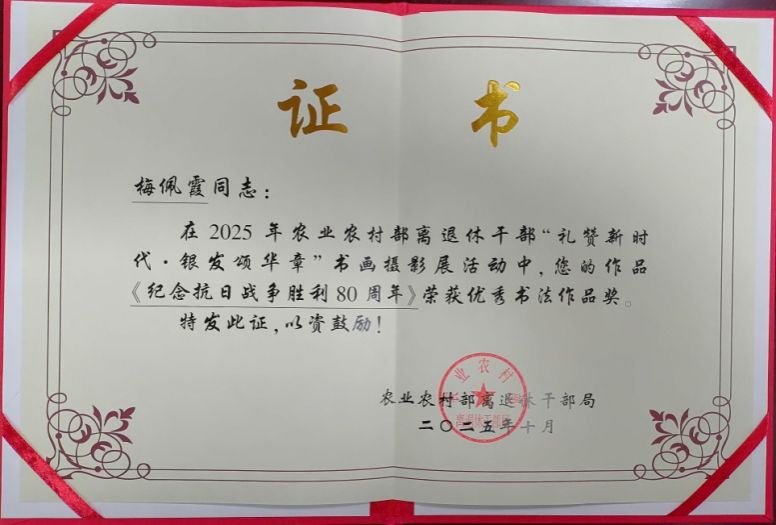 证书
梅佩霞同志：
在2025年农业农村部离退休干部“礼赞新时
代·银发颂华章”书画摄影展活动中，您的作品
《纪念抗日战争胜利80周年》荣获优秀书法作品奖。
特发此证，以资鼓励！
农业农村部离退休干部局
二〇二五年十月
农业农村部
离退休干部局